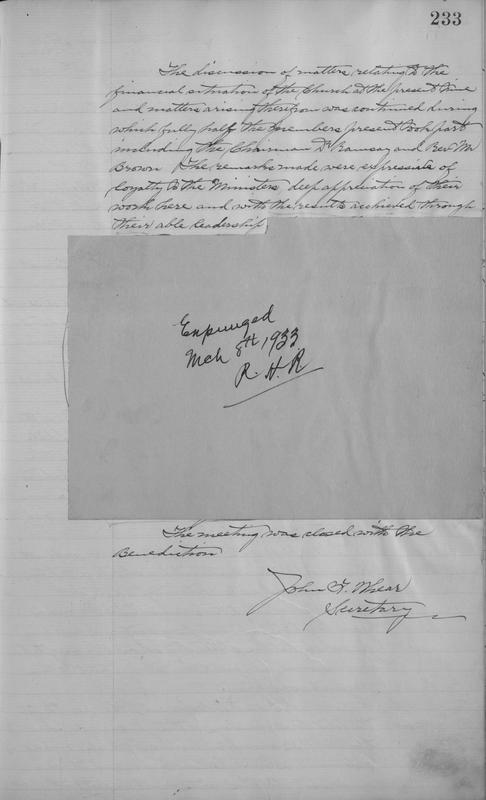 233
The discussion of matters relating to the
financial situation of the Church at the present time
and matters arising therefrom was continued during
which fully half the members present took part
including the Chairman Dr Ramsay and Rev Mr
Brown The remarks made were expressive of
loyalty to the Ministers, deep appreciation of their
work here and with the results achieved through
their able leadership
Expunged
Mch 8th 1933
R. H. R
The meeting was closed with the
Benediction
John F. Whear
Secretary